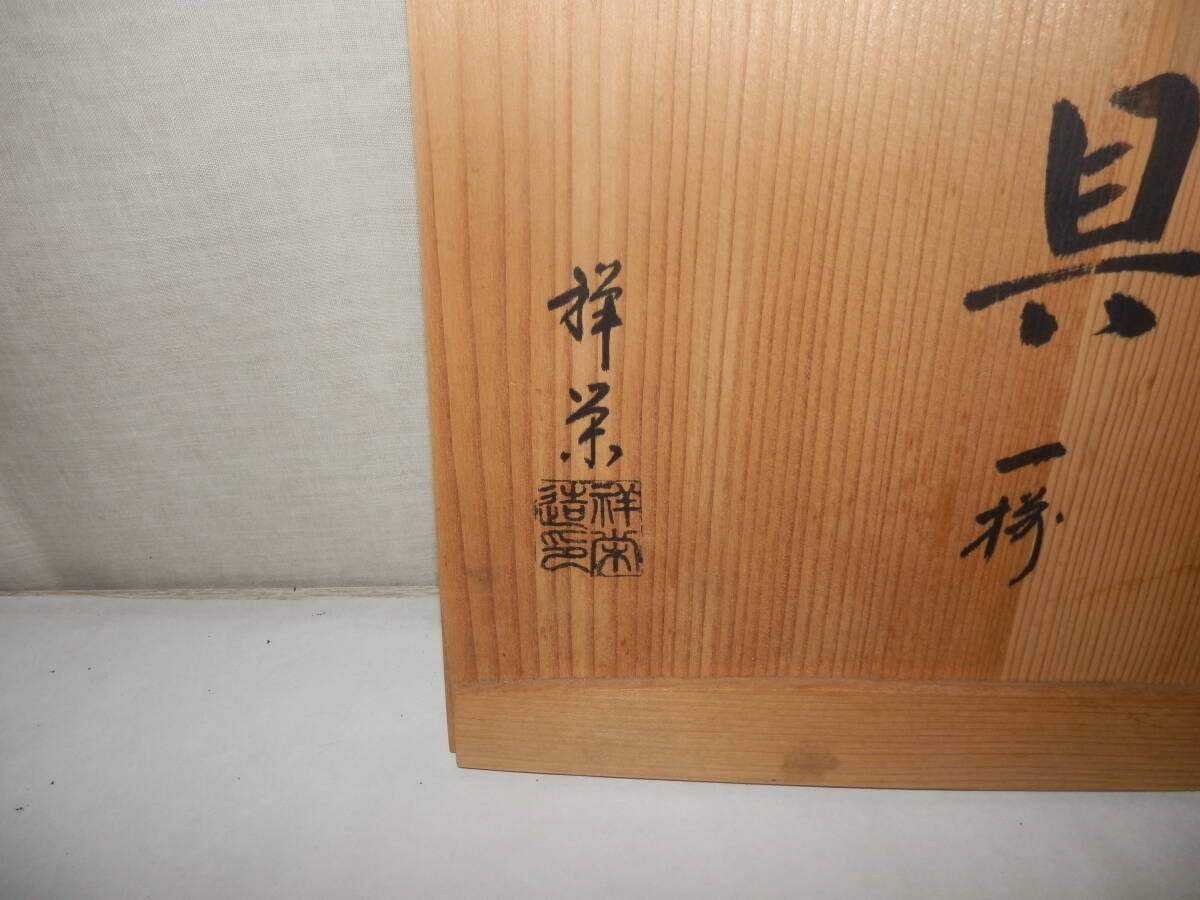 具
一揃
祥栄
祥栄
造印